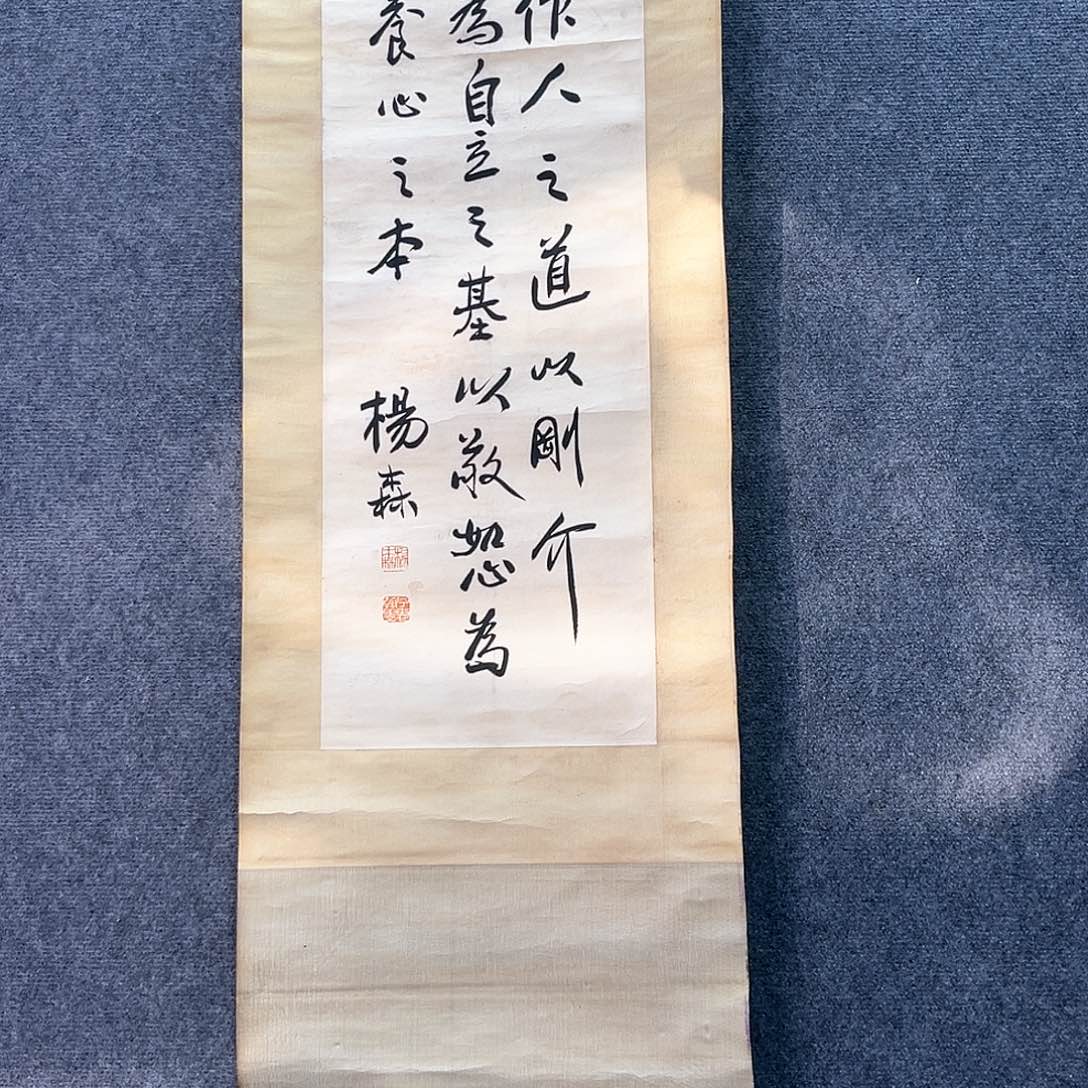 作人之道以剛介
為自立之基以敬恕為
養心之本
楊森